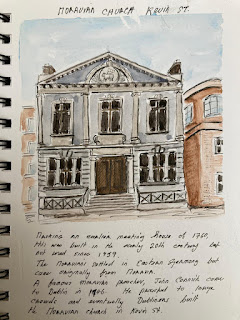 MORAVIAN CHURCH KEVIN ST.
Marking an earlier meeting house of 1750,
this was built in the early 20th century but
not used since 1959.
The Moravians settled in Eastern Germany but
came originally from Moravia.
A famous Moravian preacher, John Cennick came
to Dublin in 1746. He preached to large
crowds and eventually Dubliners built
the Moravian church in Kevin St.